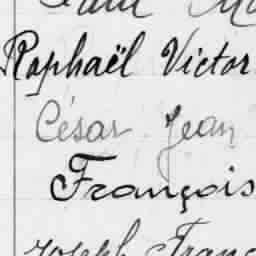 Paul
Raphaël Victor
César Jean
François
Joseph Franç